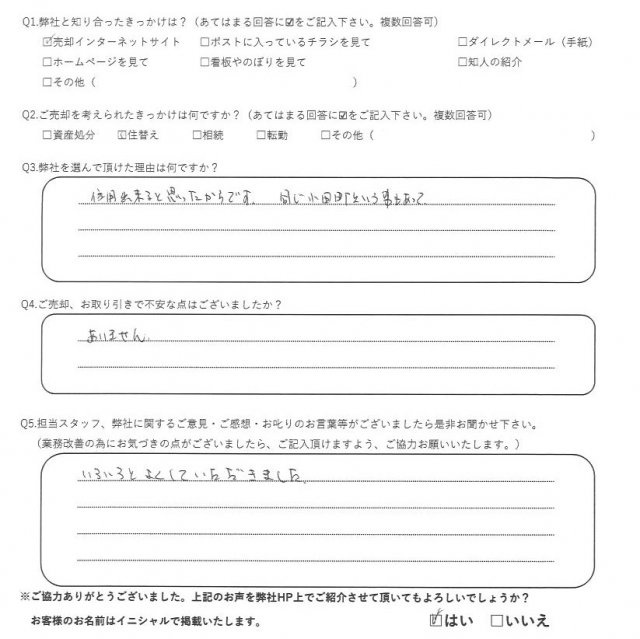 Q1.弊社と知り合ったきっかけは？（あてはまる回答に☑をご記入下さい。複数回答可）
☑売却インターネットサイト □ポストに入っているチラシを見て □ダイレクトメール（手紙）
□ホームページを見て □看板やのぼりを見て □知人の紹介
□その他（ ）
Q2.ご売却を考えられたきっかけは何ですか？（あてはまる回答に☑をご記入下さい。複数回答可）
□資産処分 ☑住替え □相続 □転勤 □その他（ ）
Q3.弊社を選んで頂けた理由は何ですか？
信用出来ると思ったからです。 同じ小田町という事もあって
Q4.ご売却、お取り引きで不安な点はございましたか？
ありません。
Q5.担当スタッフ、弊社に関するご意見・ご感想・お叱りのお言葉等がございましたら是非お聞かせ下さい。
（業務改善の為にお気づきの点がございましたら、ご記入頂けますよう、ご協力お願いいたします。）
いろいろとよくしていただきました。
※ご協力ありがとうございました。上記のお声を弊社HP上でご紹介させて頂いてもよろしいでしょうか？
お客様のお名前はイニシャルで掲載いたします。 ☑はい □いいえ